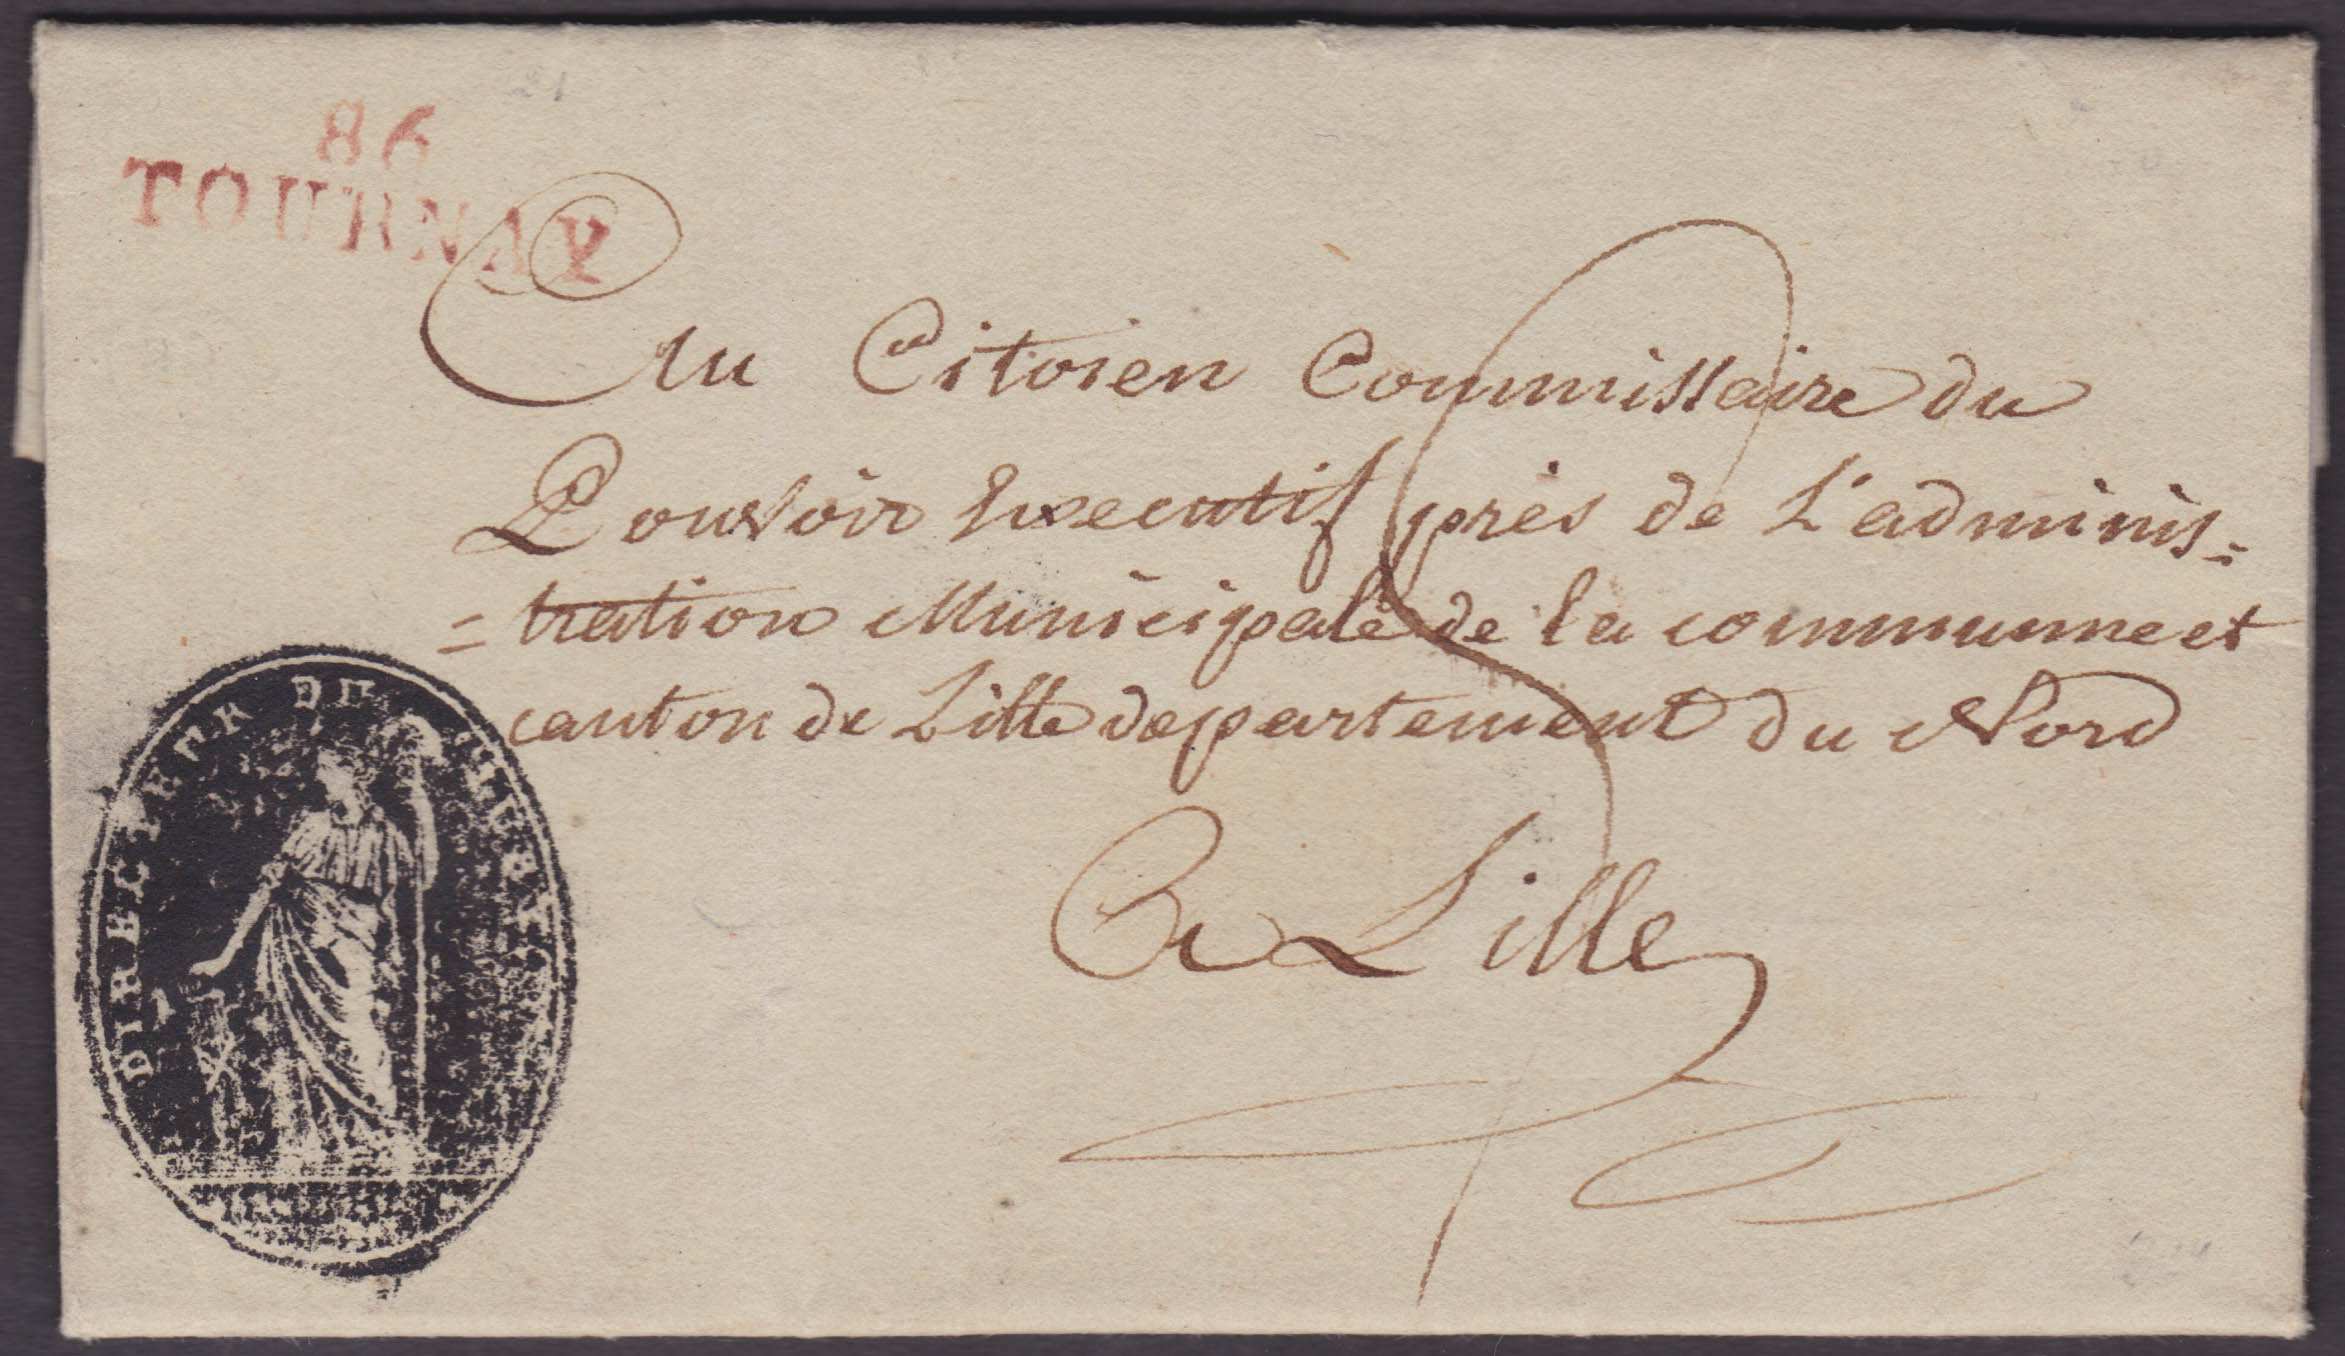 86
TOURNAY
Au Citoien Commissaire du
Pouvoir Executif près de L'adminis=
=tration Municipale de la commune et
canton de Lille departement du Nord
A Lille
DIRECTEUR DU JURY